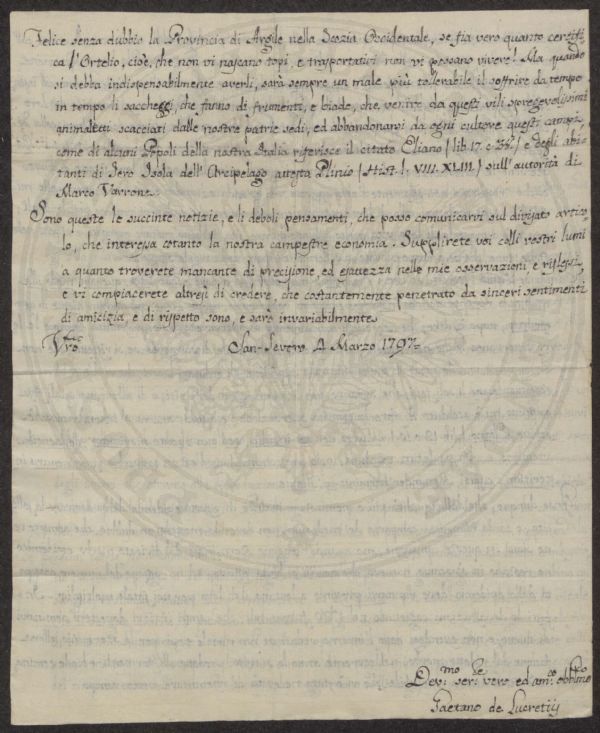 Felice senza dubbio la Provincia di Argile nella Scozia Occidentale, se fia vero quanto certifi-
ca l'Ortelio, cioè, che non vi nascano topi, e trasportativi non vi possano vivere! Ma quando
si debba indispensabilmente averli, sarà sempre un male più tollerabile il soffrire da tempo
in tempo li saccheggj, che fanno di frumenti, e biade, che venire da questi vili spregevolissimi
animaletti scacciati dalle nostre patrie sedi, ed abbandonarsi da ogni cultore questi campi,
come di alcuni Popoli della nostra Italia riferisce il citato Eliano (lib. 17. c. ) e degli abi-
tanti di Jero Isola dell'Arcipelago attesta Plinio (Hist. l. VIII. XLIII.) sull'autorità di
Marco Varrone.
Sono queste le succinte notizie, e li deboli pensamenti, che posso comunicarvi sul divisato artico-
lo, che interessa cotanto la nostra campestre economia. Supplirete voi colli vostri lumi
a quanto troverete mancante di precisione, ed esattezza nelle mie osservazioni, e riflessi,
e vi compiacerete altresì di credere, che costantemente penetrato da sinceri sentimenti
di amicizia, e di rispetto sono, e sarò invariabilmente
San-Severo 4 Marzo 1797.
Devmo serv vero ed amco obblmo
Gaetano de Lucretiis